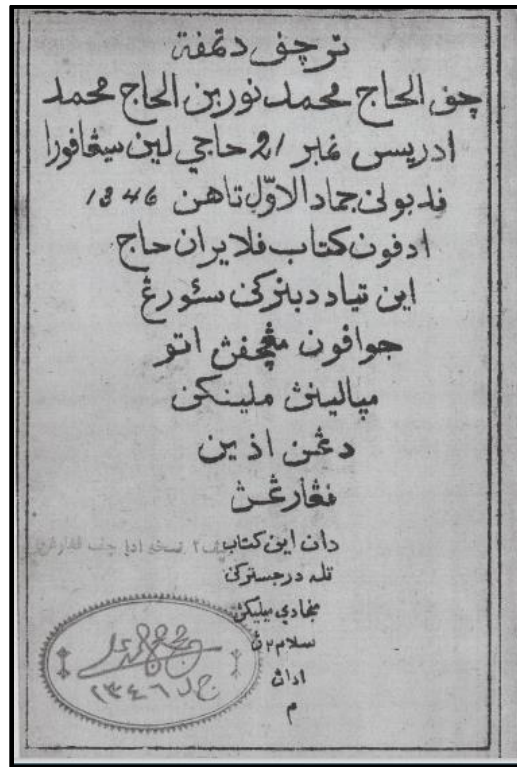 ترچف دتمفة
چف الحاج محمد نور بن الحاج محمد
ادريس نمبر 21 حاجي لين سيڠافورا
فد بولن جماد الاوّل تاهن 1346
ادفون كتاب فلايران حاج
اين تياد دبنركن سئورڠ
جوافون مڠچفڽ اتو
مپالينڽ ملينكن
دڠن اذين
فڠارڠڽ
دان اين كتاب
تله درجستركن
منجادي ميليكڽ
سلام٢ڽ
ادان
م
١٣٤٦